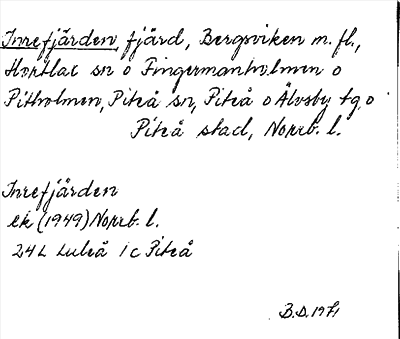 Inrefjärden, fjärd, Bergsviken m. fl.,
Hortlax sn o Fingermanholmen o
Pitholmen, Piteå sn, Piteå o Älvsby tg, o
Piteå stad, Norrb. l.
Inrefjärden
ek (1949) Norrb. l.
24L Luleå 1c Piteå
B.D. 1971